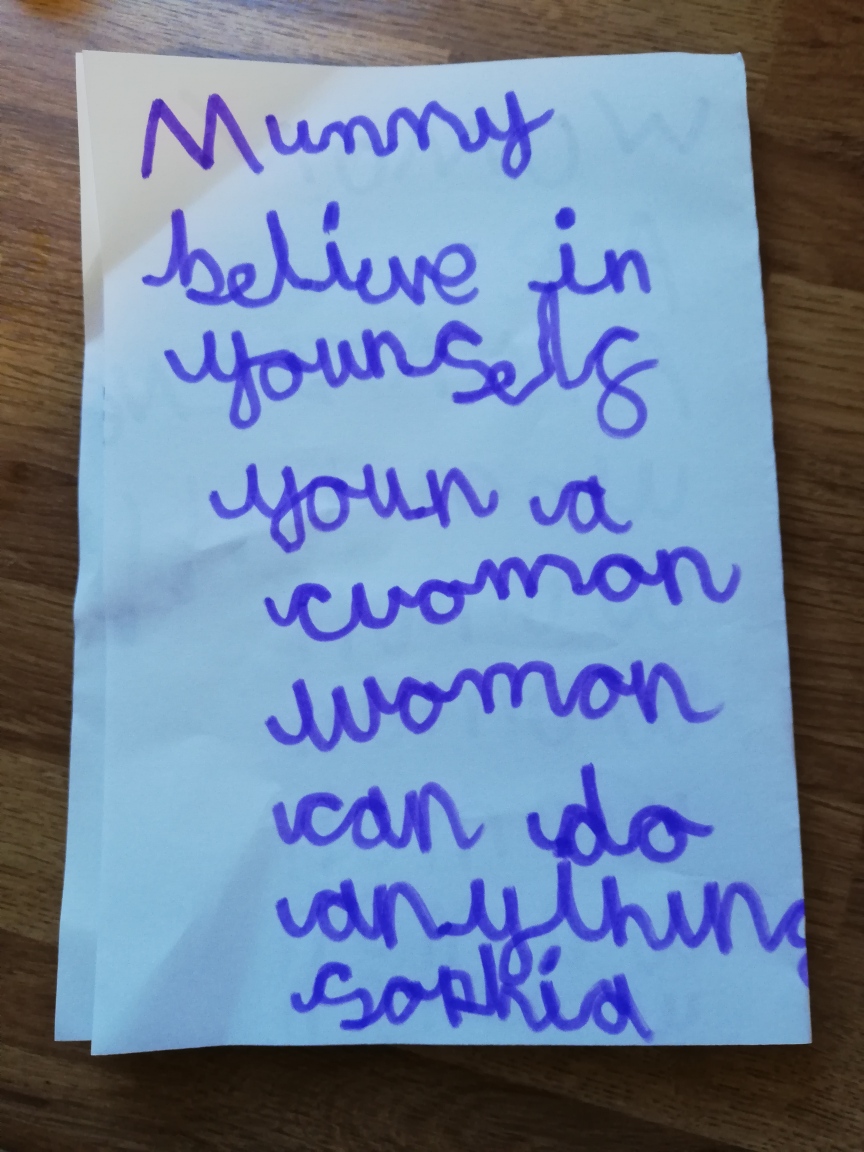 Mummy
believe in
yourself
your a
cwoman
woman
can do
anything
sophia